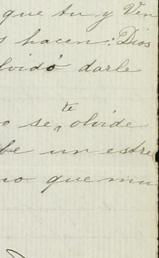 que tu y Ven
s hacen: Dios
lvidó darle
o se te olvide
be un estre
no que mu